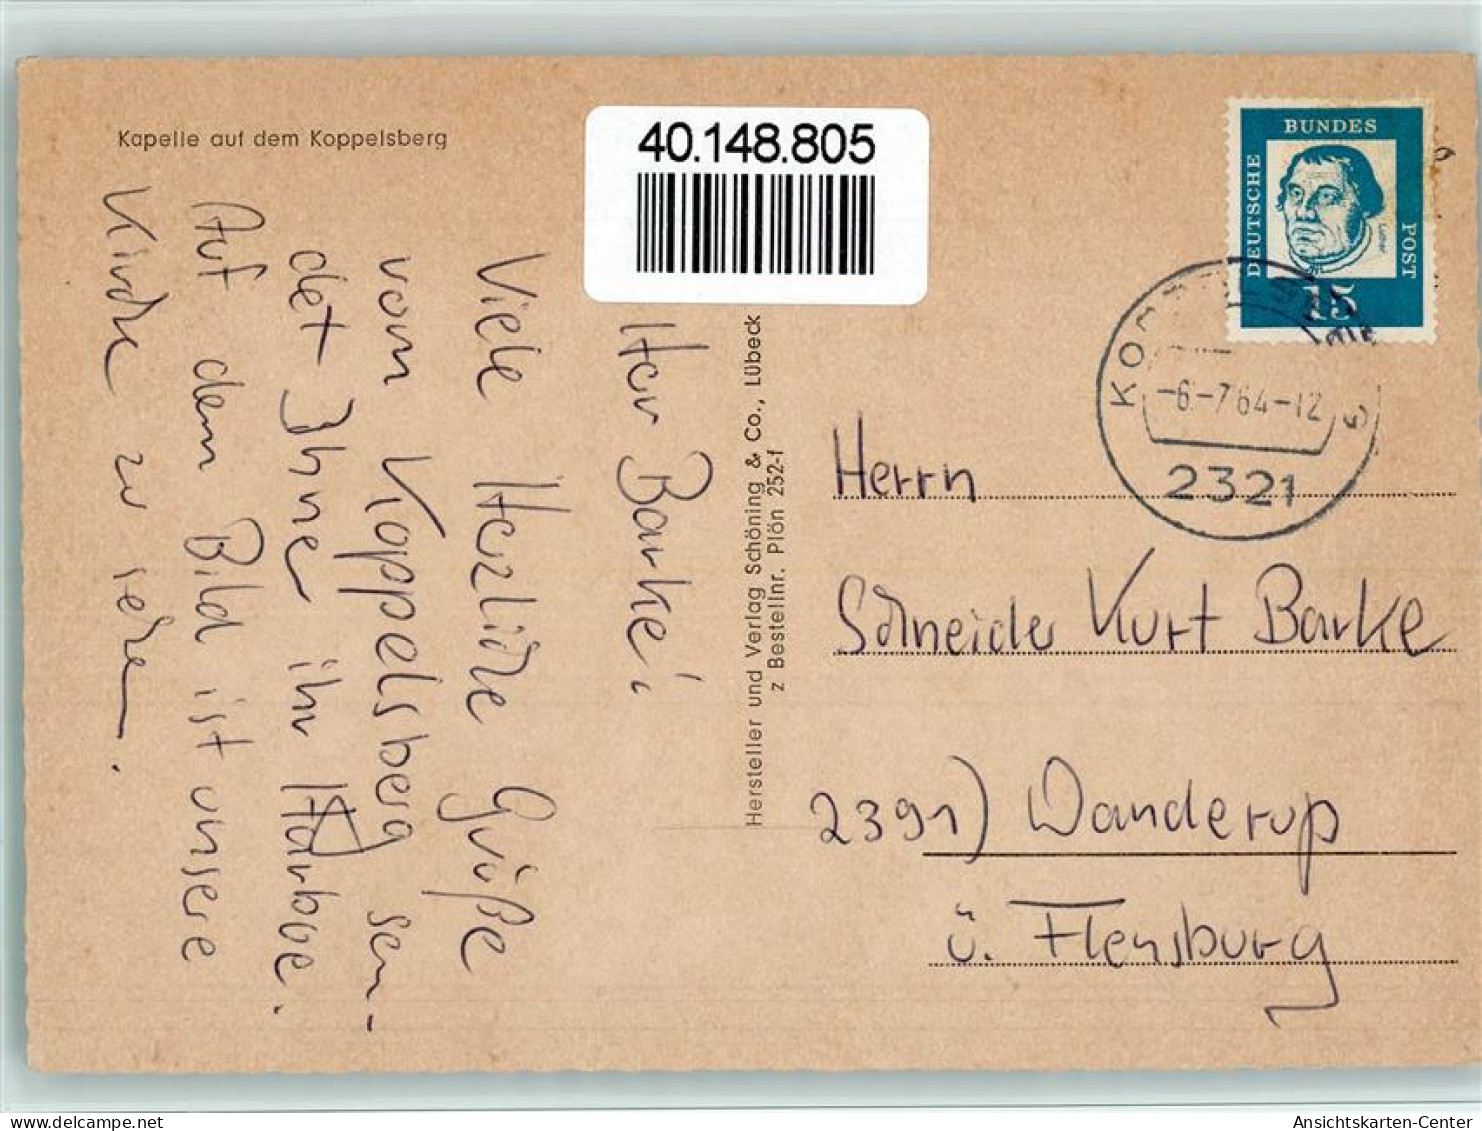 Kapelle auf dem Koppelsberg
40.148.805
Herr Barke!
Viele Herzliche Grüße
vom Koppelsberg sen-
det Ihnen ihr Harboe.
Auf dem Bild ist unsere
Kirche zu sehen.
Hersteller und Verlag Schöning & Co., Lübeck
z Bestellnr. Plön 252-f
DEUTSCHE
BUNDES
POST
Luther
15
-6.-7.64-12
2321
Herrn
Schneider Kurt Barke
2391) Wanderup
ü. Flensburg
Ansichtskarten-Center